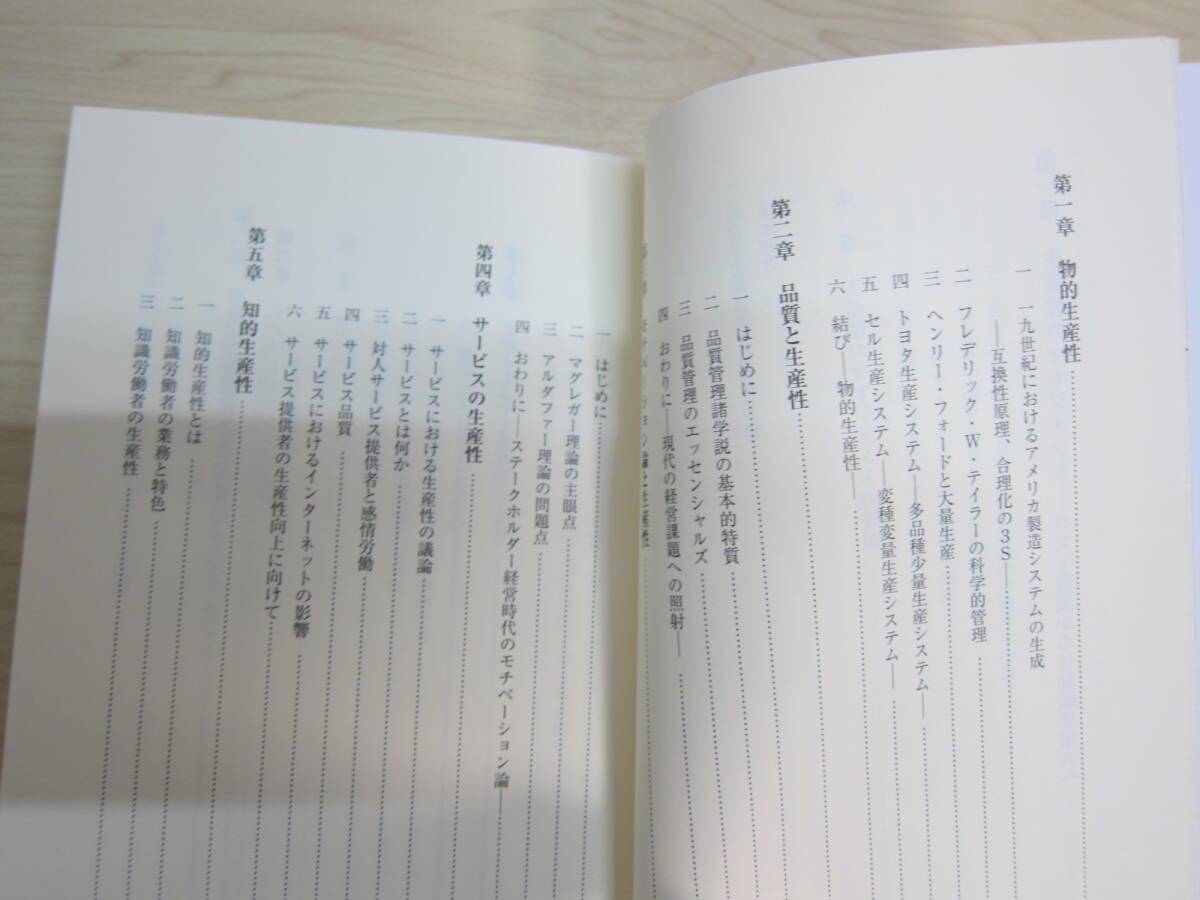 第一章 物的生産性
一 一九世紀におけるアメリカ製造システムの生成
――互換性原理、合理化の3S――
二 フレデリック・W・テイラーの科学的管理
三 ヘンリー・フォードと大量生産
四 トヨタ生産システム――多品種少量生産システム――
五 セル生産システム――変種変量生産システム――
六 結び――物的生産性――
第二章 品質と生産性
一 はじめに
二 品質管理諸学説の基本的特質
三 品質管理のエッセンシャルズ
四 おわりに――現代の経営課題への照射――
論と生産性
一 はじめに
二 マグレガー理論の主眼点
三 アルダファー理論の問題点
四 おわりに――ステークホルダー経営時代のモチベーション論――
第四章 サービスの生産性
一 サービスにおける生産性の議論
二 サービスとは何か
三 対人サービス提供者と感情労働
四 サービス品質
五 サービスにおけるインターネットの影響
六 サービス提供者の生産性向上に向けて
第五章 知的生産性
一 知的生産性とは
二 知識労働者の業務と特色
三 知識労働者の生産性